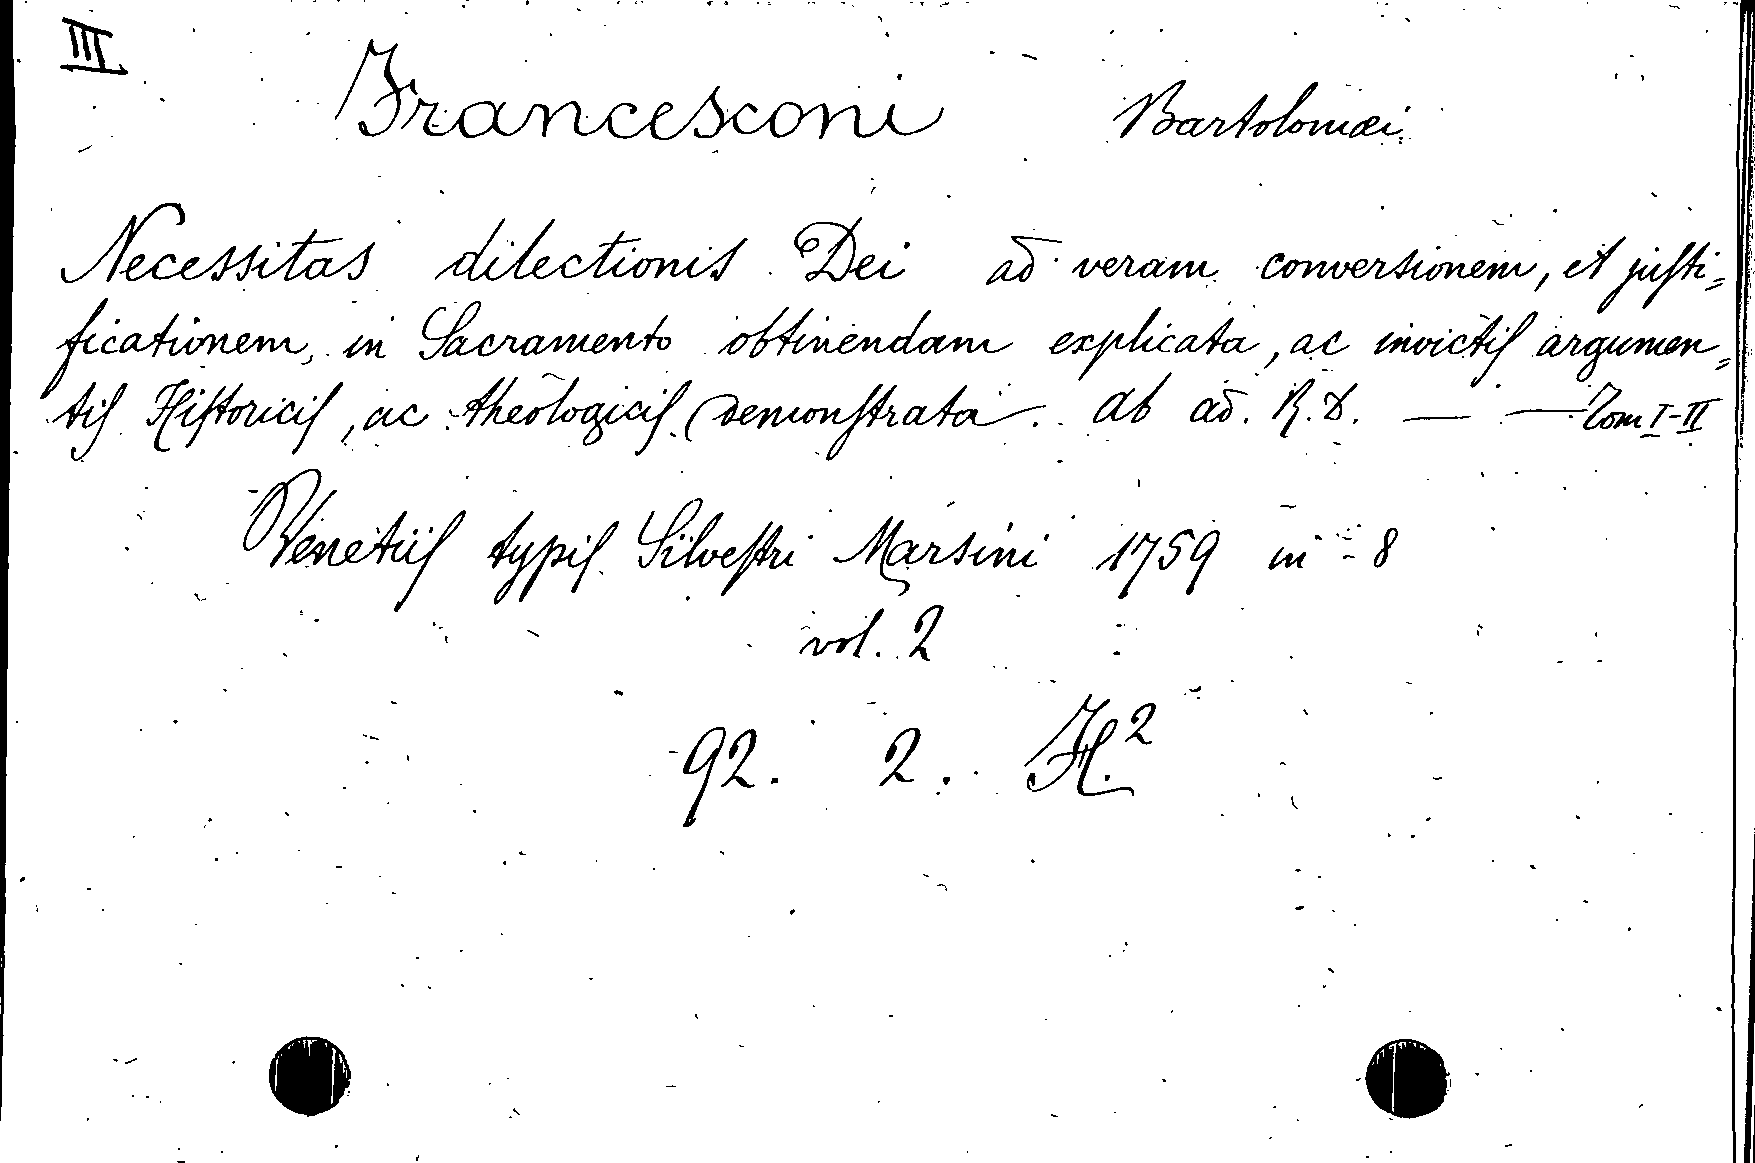 III
Francesconi Bartolomæi
Necessitas dilectionis Dei ad veram conversionem, et justi=
ficationem, in Sacramento obtinendam explicata, ac invictis argumen=
tis Historicis, ac theologicis demonstrata. Ab ad. R. D. — — Tom I-II
Venetiis typis Silvestri Marsini 1759 in - 8
vol. 2
92. 2. H.²